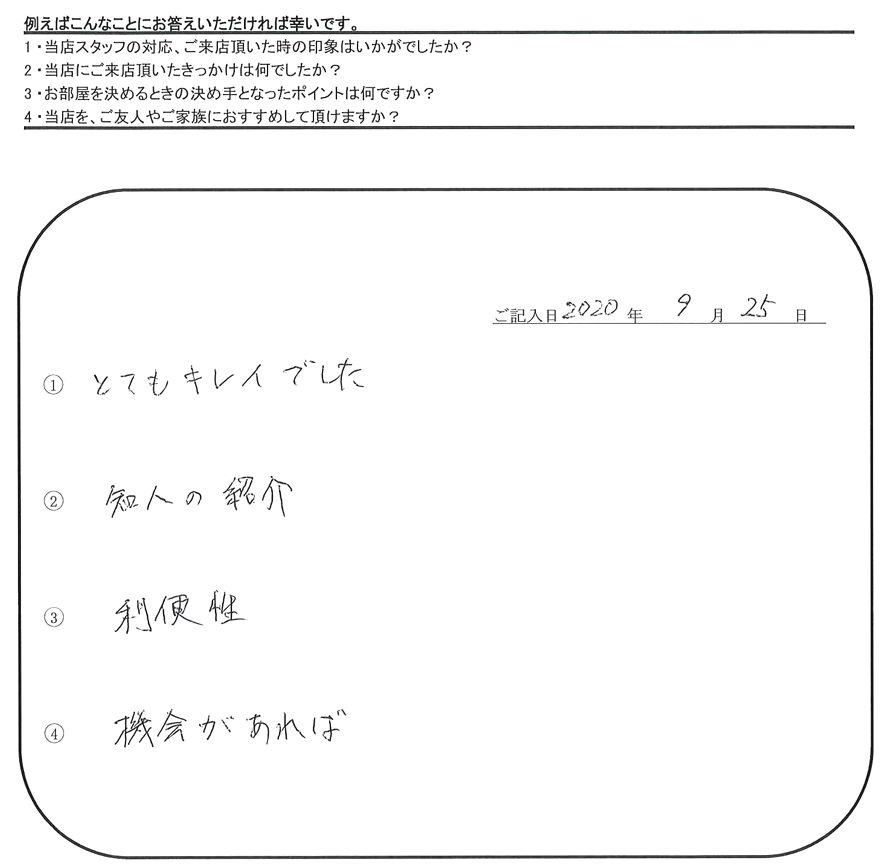 例えばこんなことにお答えいただければ幸いです。
1・当店スタッフの対応、ご来店頂いた時の印象はいかがでしたか？
2・当店にご来店頂いたきっかけは何でしたか？
3・お部屋を決めるときの決め手となったポイントは何ですか？
4・当店を、ご友人やご家族におすすめして頂けますか？
ご記入日2020年 9月 25日
① とてもキレイでした
② 知人の紹介
③ 利便性
④ 機会があれば